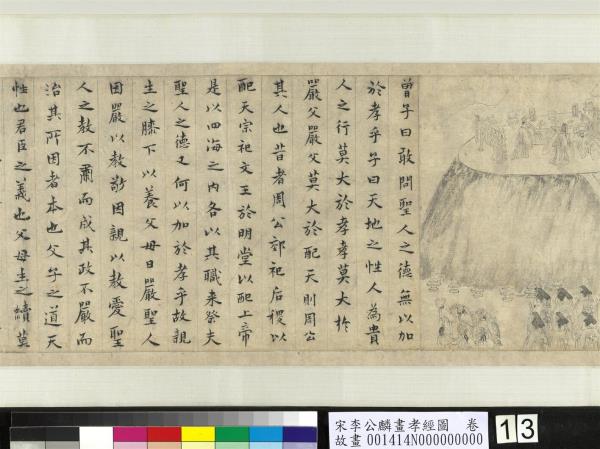 曾子曰敢問聖人之德無以加
於孝乎子曰天地之性人為貴
人之行莫大於孝孝莫大於
嚴父嚴父莫大於配天則周公
其人也昔者周公郊祀后稷以
配天宗祀文王於明堂以配上帝
是以四海之內各以其職來祭夫
聖人之德又何以加於孝乎故親
生之膝下以養父母日嚴聖人
因嚴以教敬因親以教愛聖
人之教不肅而成其政不嚴而
治其所因者本也父子之道天
性也君臣之義也父母生之續莫
宋李公麟畫孝經圖 卷
故畫 001414N000000000
13